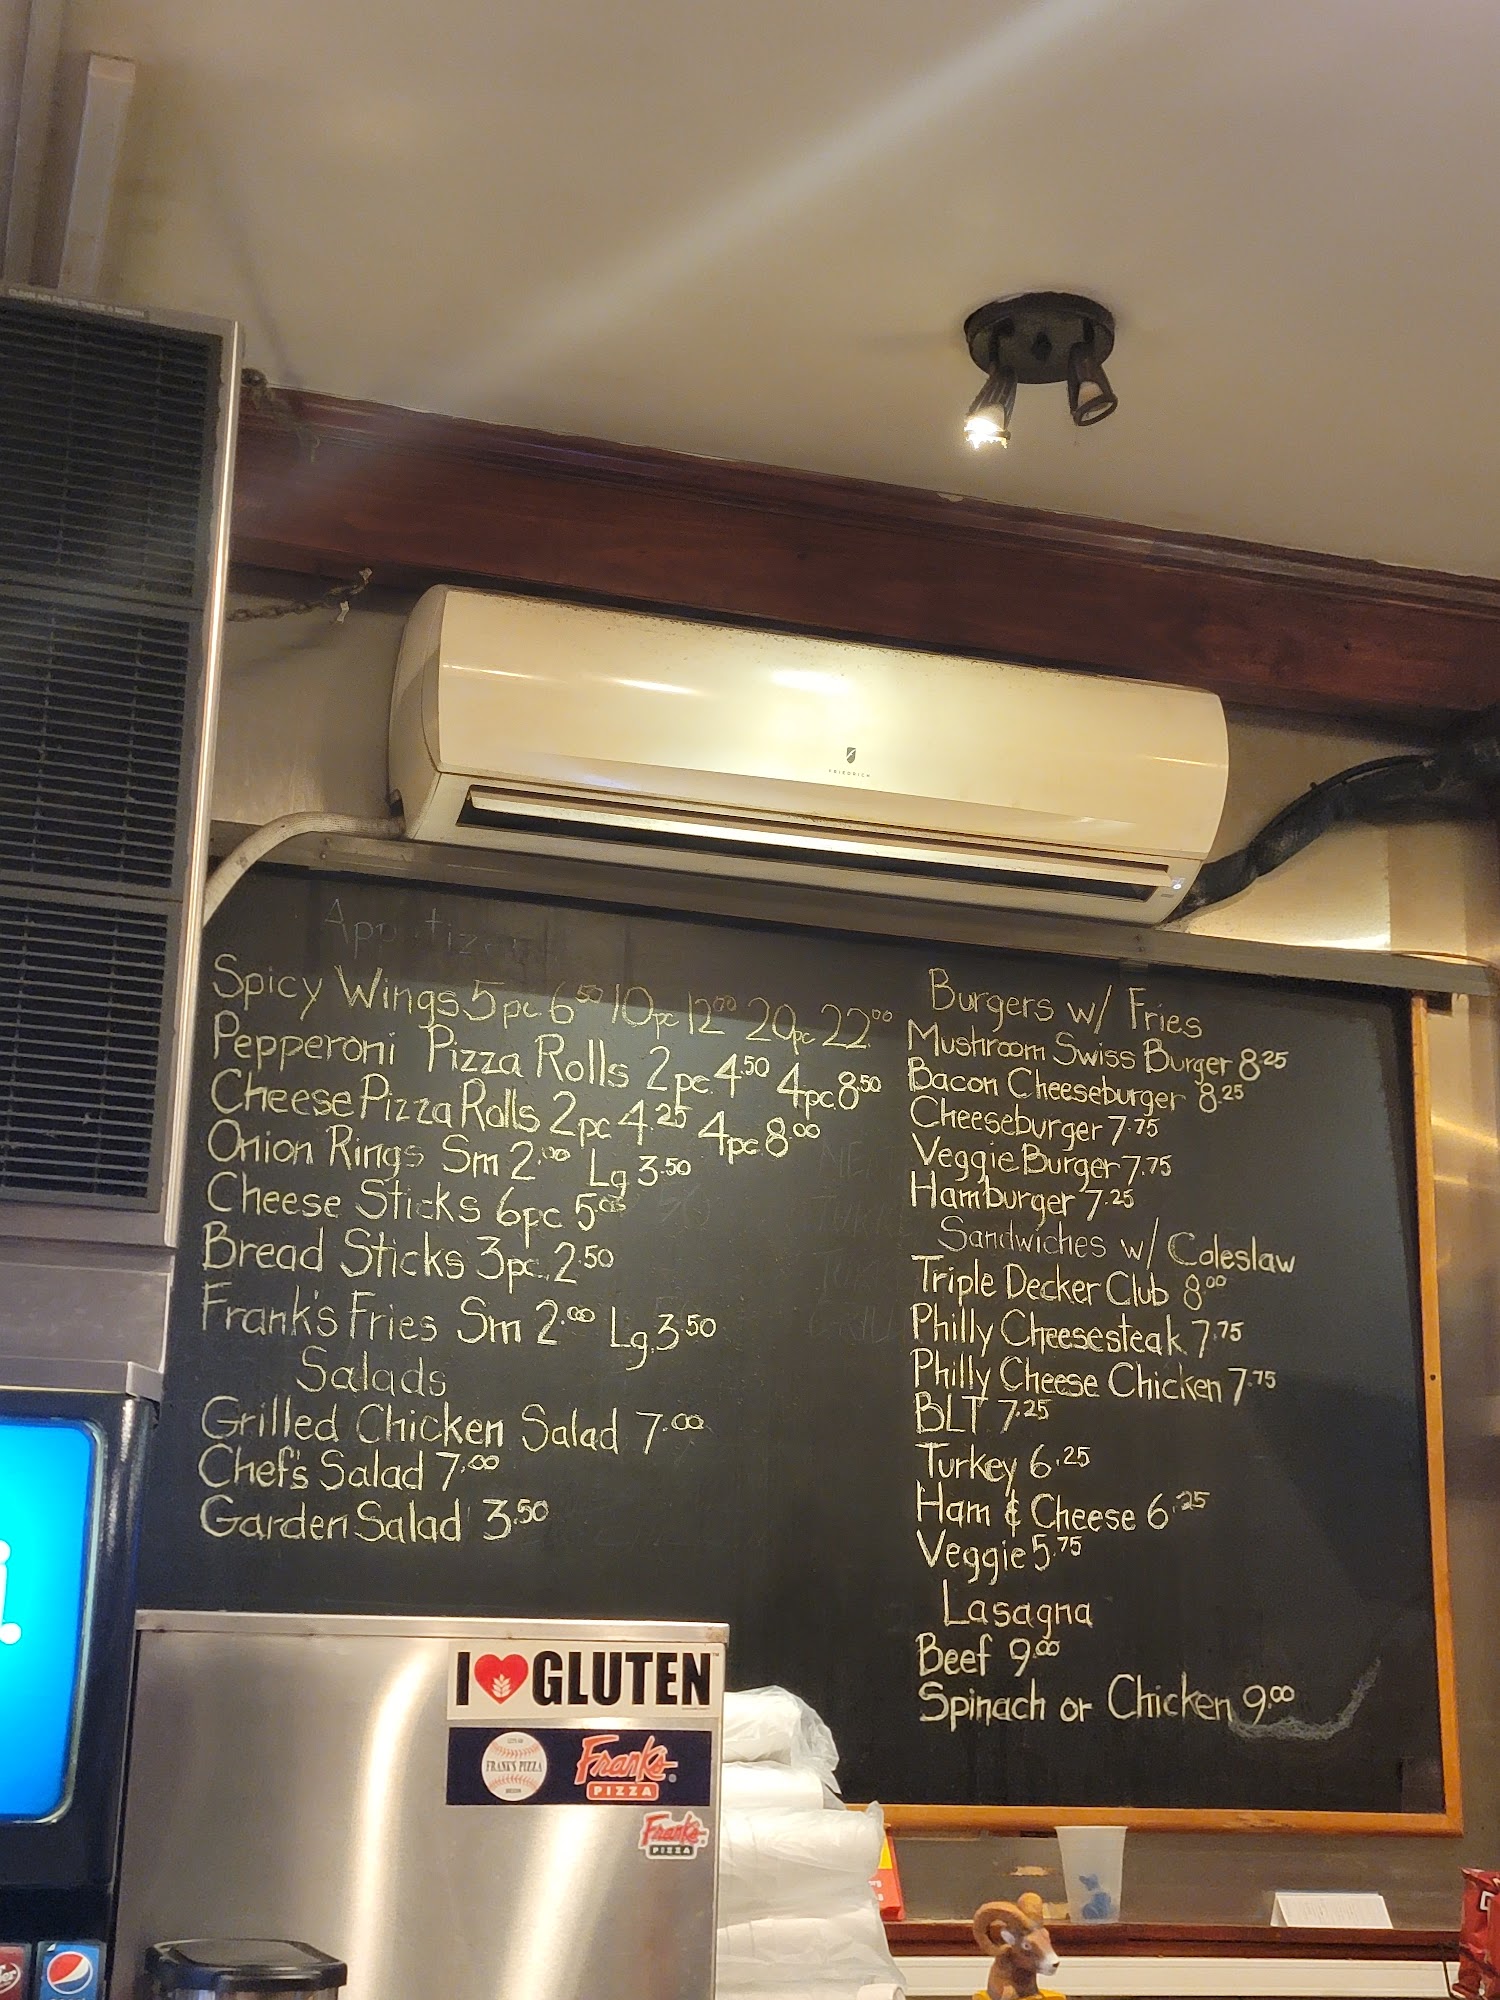 FRIEDRICH
Appetizers
Spicy Wings 5pc 6.50 10pc 12.00 20pc 22.00
Pepperoni Pizza Rolls 2pc. 4.50 4pc. 8.50
Cheese Pizza Rolls 2pc 4.25 4pc 8.00
Onion Rings Sm 2.00 Lg 3.50
Cheese Sticks 6pc 5.00
Bread Sticks 3pc. 2.50
Frank's Fries Sm 2.00 Lg. 3.50
Salads
Grilled Chicken Salad 7.00
Chef's Salad 7.00
Garden Salad 3.50
Burgers w/ Fries
Mushroom Swiss Burger 8.25
Bacon Cheeseburger 8.25
Cheeseburger 7.75
Veggie Burger 7.75
Hamburger 7.25
Sandwiches w/ Coleslaw
Triple Decker Club 8.00
Philly Cheesesteak 7.75
Philly Cheese Chicken 7.75
BLT 7.25
Turkey 6.25
Ham & Cheese 6.25
Veggie 5.75
Lasagna
Beef 9.00
Spinach or Chicken 9.00
I GLUTEN
FRANK'S PIZZA
Frank's
PIZZA
Frank's
PIZZA